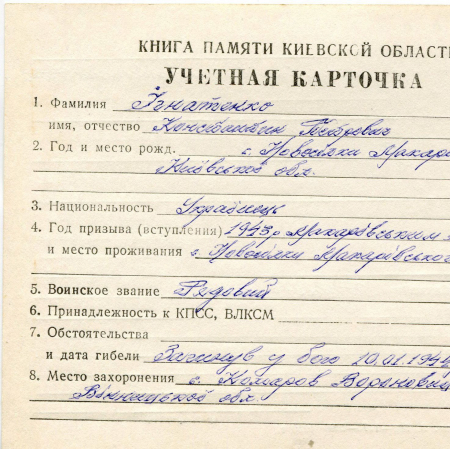 КНИГА ПАМЯТИ КИЕВСКОЙ ОБЛАСТ
УЧЕТНАЯ КАРТОЧКА
1. Фамилия Ігнатенко
имя, отчество Константин Петрович
2. Год и место рожд. с. Новосілки Макарі
Київської обл.
3. Национальность Українець
4. Год призыва (вступления) 1943, Макарівським
и место проживания с. Новосілки Макарівського
5. Воинское звание Рядовий
6. Принадлежность к КПСС, ВЛКСМ
7. Обстоятельства
и дата гибели Загинув у бою 10.01.1944
8. Место захоронения с. Комаров
Вінницької обл.